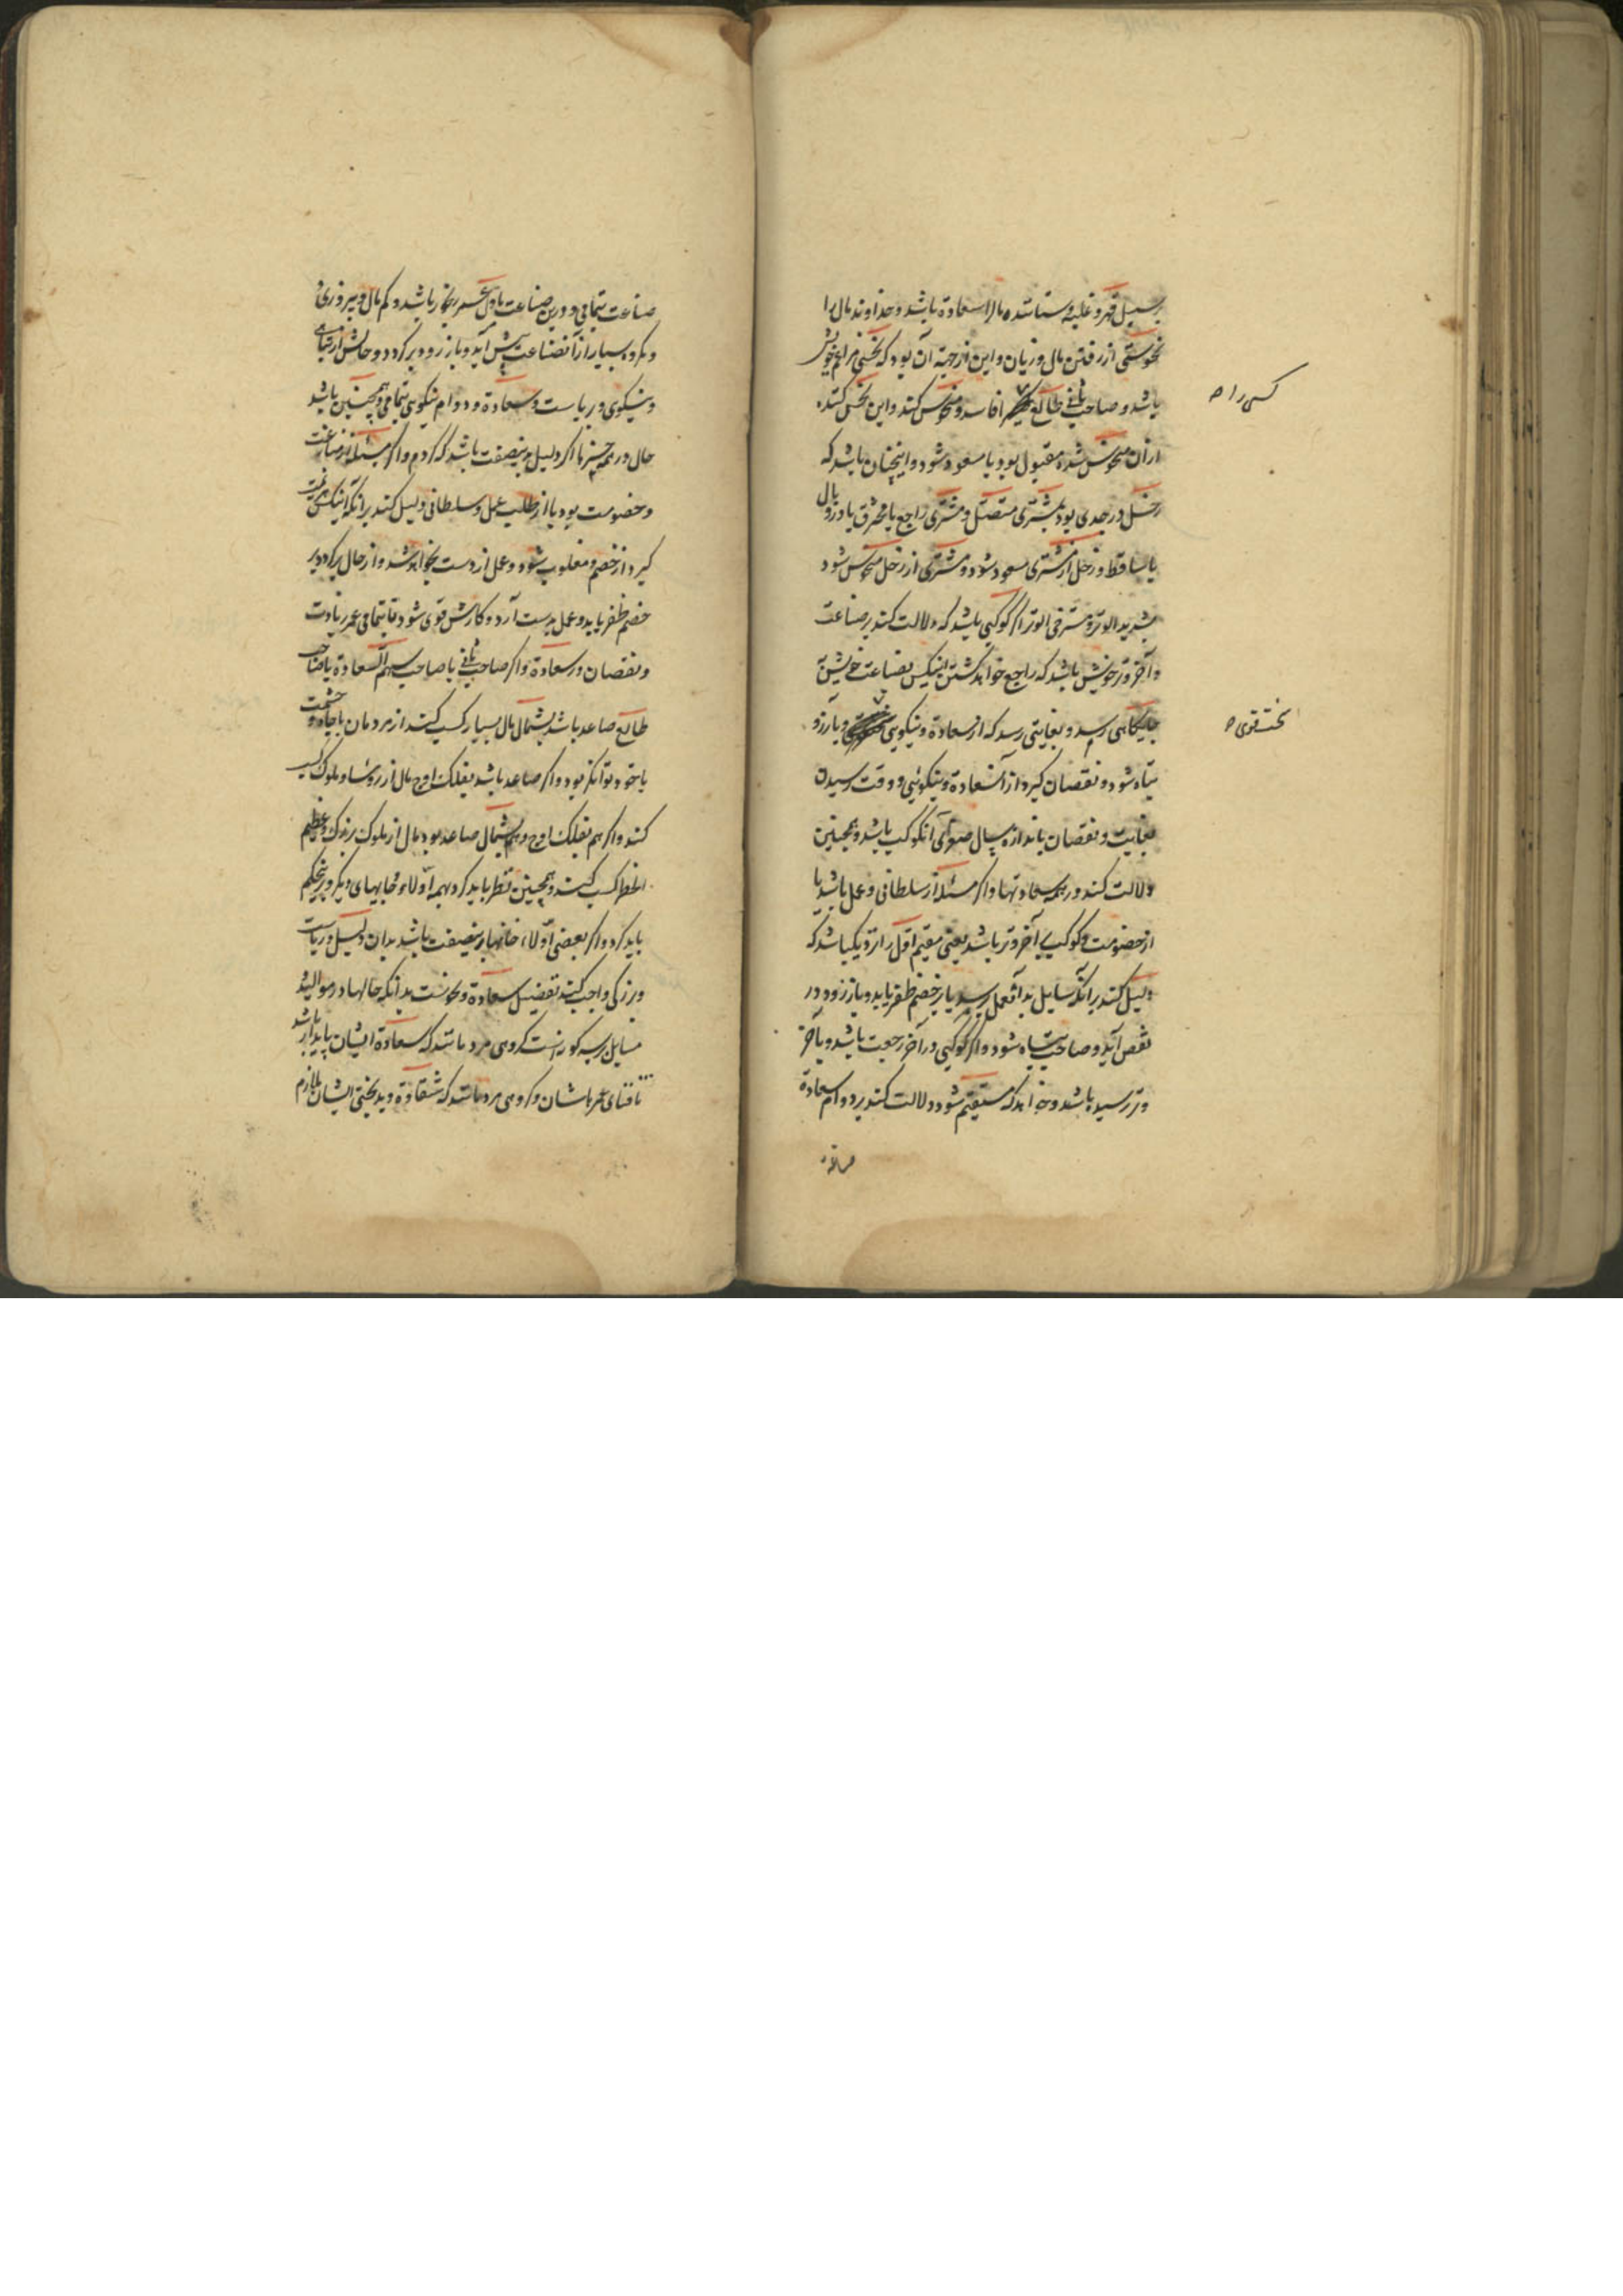 برسبیل قهر و غلبه و ستاننده مال را سعادة باشد و خداوند مال را
نحوستی از رفتن مال و زیان و این از جهة آن بود که نحسی مراغم خویش
باشد و صاحب ثانی طالع را فاسد و منحوس کند و این نحس کننده
کسی را صح
از آن منحوس شده مقبول بود یا مسعود شود و اینچنان باشد که
زحل در جدی بود بمشتری متصل و مشتری راجع یا محترق یا در وبال
یا ساقط و زحل از مشتری مسعود شود و مشتری از زحل منحوس شود
اگر کوکبی باشد که دلالت کند بر صناعت
و آخر وتر خویش باشد که راجع خواهد گشتن اینکس بصناعت خویش
جایگاهی رسد و بغایتی رسد که از سعادة و نیکویی و بآرزو
بخت قوی صح
تباه شود و نقصان گیرد از آن سعادة و نیکوئی و وقت رسیدن
بغایت و نقصان باندازه سال آنکوکب باشد و همچنین
دلالت کند در همه سعادتها و اگر مسئله از سلطانی و عمل باشد یا
از خصومت و کوکب بآخر وتر باشد یعنی مقیم اول را نزدیک باشد که
دلیل کند برآنکه سایل بدآن عمل رسد یا بر خصم ظفر یابد و باز زود در
نقص آید و صاحبش تباه شود و اگر کوکبی در آخر رجعت باشد و بآخر
وتر رسیده باشد و خواهد که مستقیم شود دلالت کند بر دوام سعادة
صناعت بتمامی و درین صناعت باول عمر رنجور باشد و کم مال و پیروزی
و مکروه بسیار از آن صناعت پیش آید و باز زود برگردد و حالش از تباهی
و نیکوی و ریاست و سعادة و دوام نیکویی بتمامی و همچنین باشد
حال در همه چیزها اگر دلیل بدینصفت باشد که کردم و اگر مسئله از منازعت
و خصومت بود یا از طلب عمل و سلطانی دلیل کند برآنکه اینکس هزیمت
گیرد از خصم و مغلوب شود و عمل از دست بخواهد شد و از حال برگردد بر
خصم ظفر یابد و عمل بدست آرد و کارش قوی شود تا بتمامی عمر زیادت
و نقصان در سعادة و اگر صاحب ثانی یا صاحب سهم السعادة یا صاحب
طالع صاعد باشد بشمال مال بسیار کسب کند از مردمان با جاه و حشمت
یا خود توانگر بود و اگر صاعد باشد بفلک اوج مال از رؤسا و ملوک کسب
کند و اگر هم بفلک اوج و هم بشمال صاعد بود مال از ملوک بزرگ و عظیم
الخطر کسب کند و همچنین نظر باید کرد بهمه ادلاء و خانهای دیگر و برین حکم
باید کرد و اگر بعضی ادلاء خانها برینصفت باشد بدان دلیل و ریاست
و رزکی واجب کند تفصیل سعادة و نحوست بدآنکه حالها در موالید
مسایل بر سه گونه است گروهی مردمانند که سعادة ایشان پایدار باشد
تا فنای عمرهاشان و گروهی مردمانند که شقاوة و بدبختی ایشان ملازم